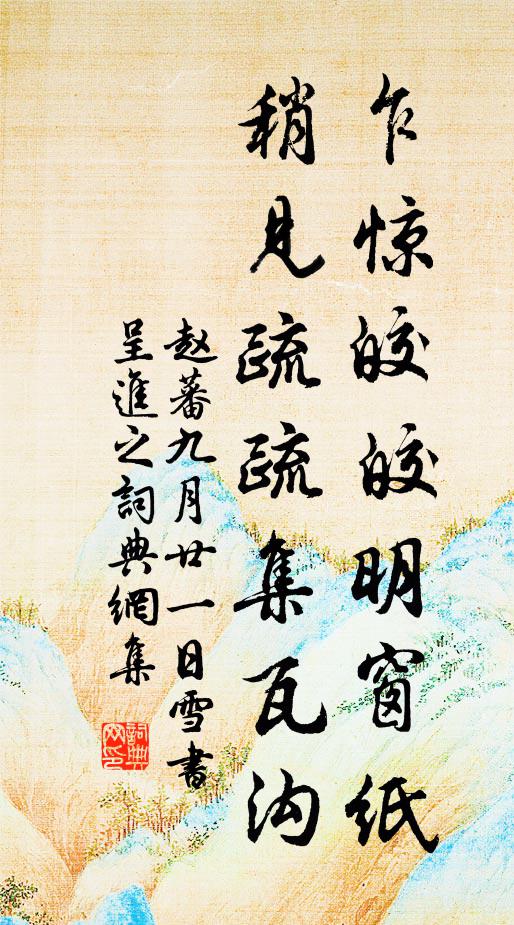 乍惊皎皎明窗纸
稍见疏疏集瓦沟
赵蕃九月廿一日雪書
呈進之詞典網集
詞典
网印